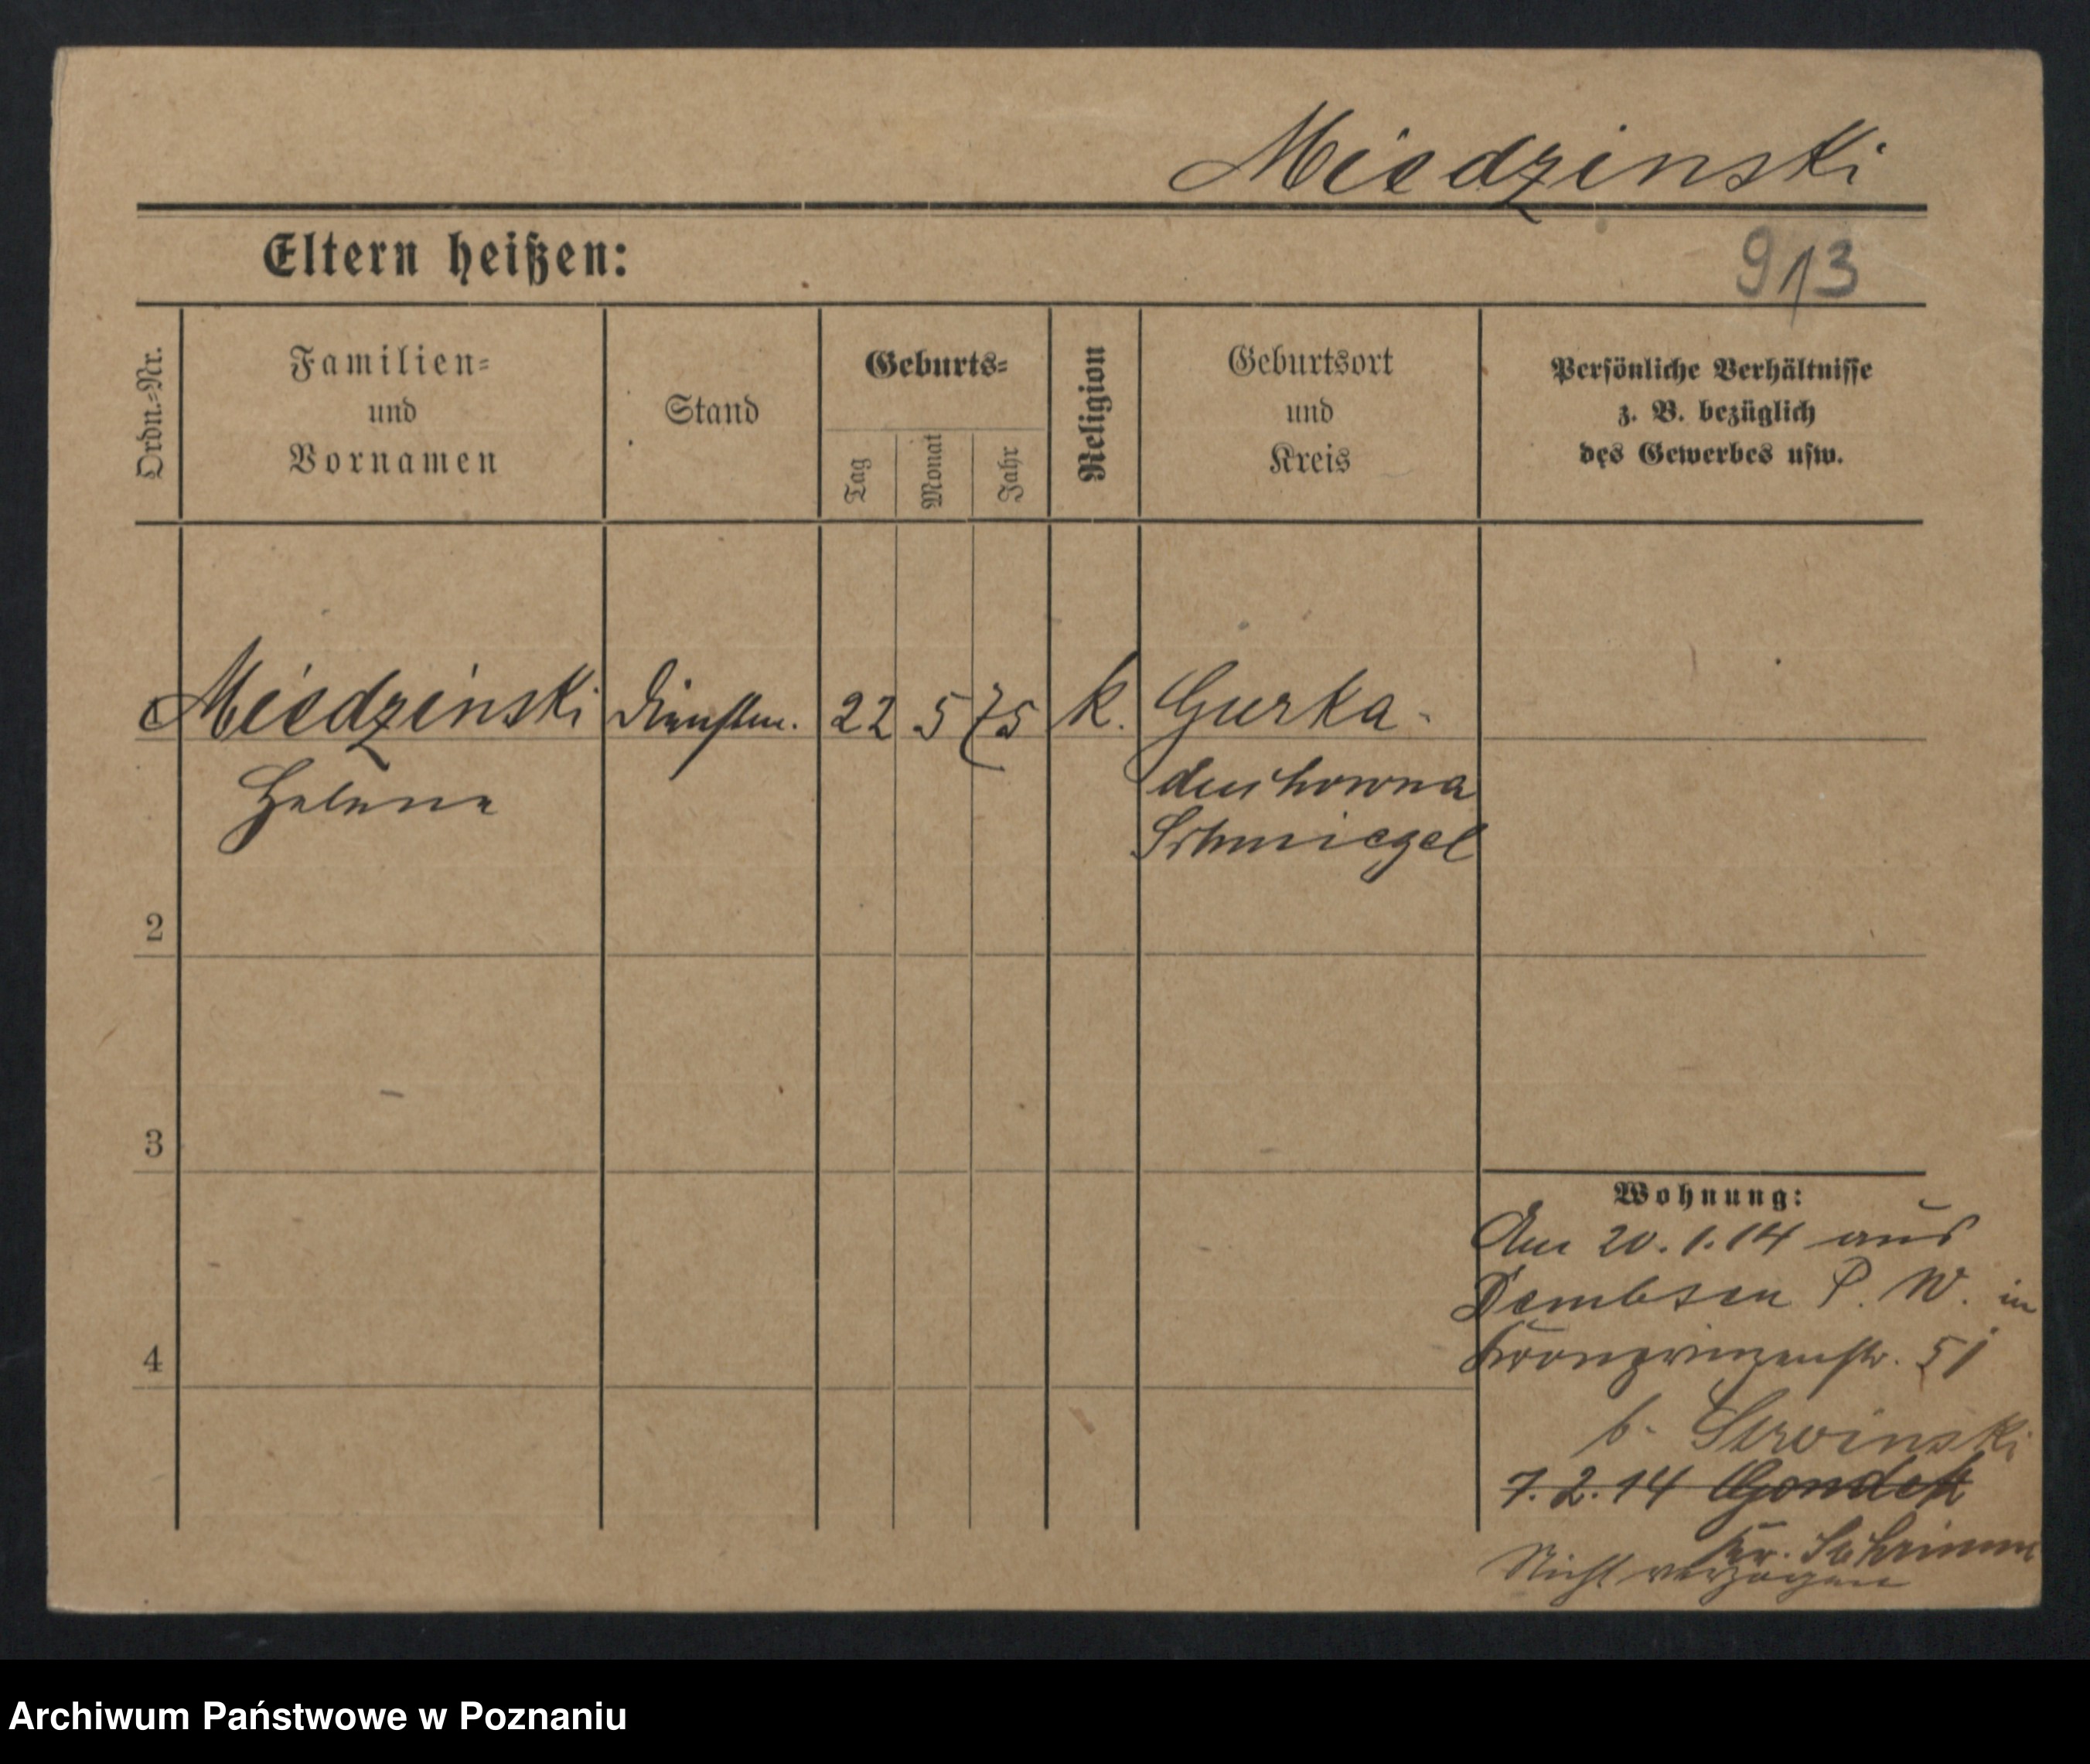 Miedzinski
Eltern heißen:
913
Ordn.-Nr.
Familien-
und
Vornamen
Stand
Geburts-
Tag
Monat
Jahr
Religion
Geburtsort
und
Kreis
Persönliche Verhältnisse
z. B. bezüglich
des Gewerbes usw.
Miedzinski
Dienstm.
22
5
75
k.
Gurka
duchowna
Helene
Schmiegel
2
3
4
Wohnung:
Am 20.1.14 aus
Dembsen P. W. in
Kronprinzenstr. 51
b.
7.2.14 Gondek
Kr. Schrimm
Nicht verzogen
Archiwum Państwowe w Poznaniu